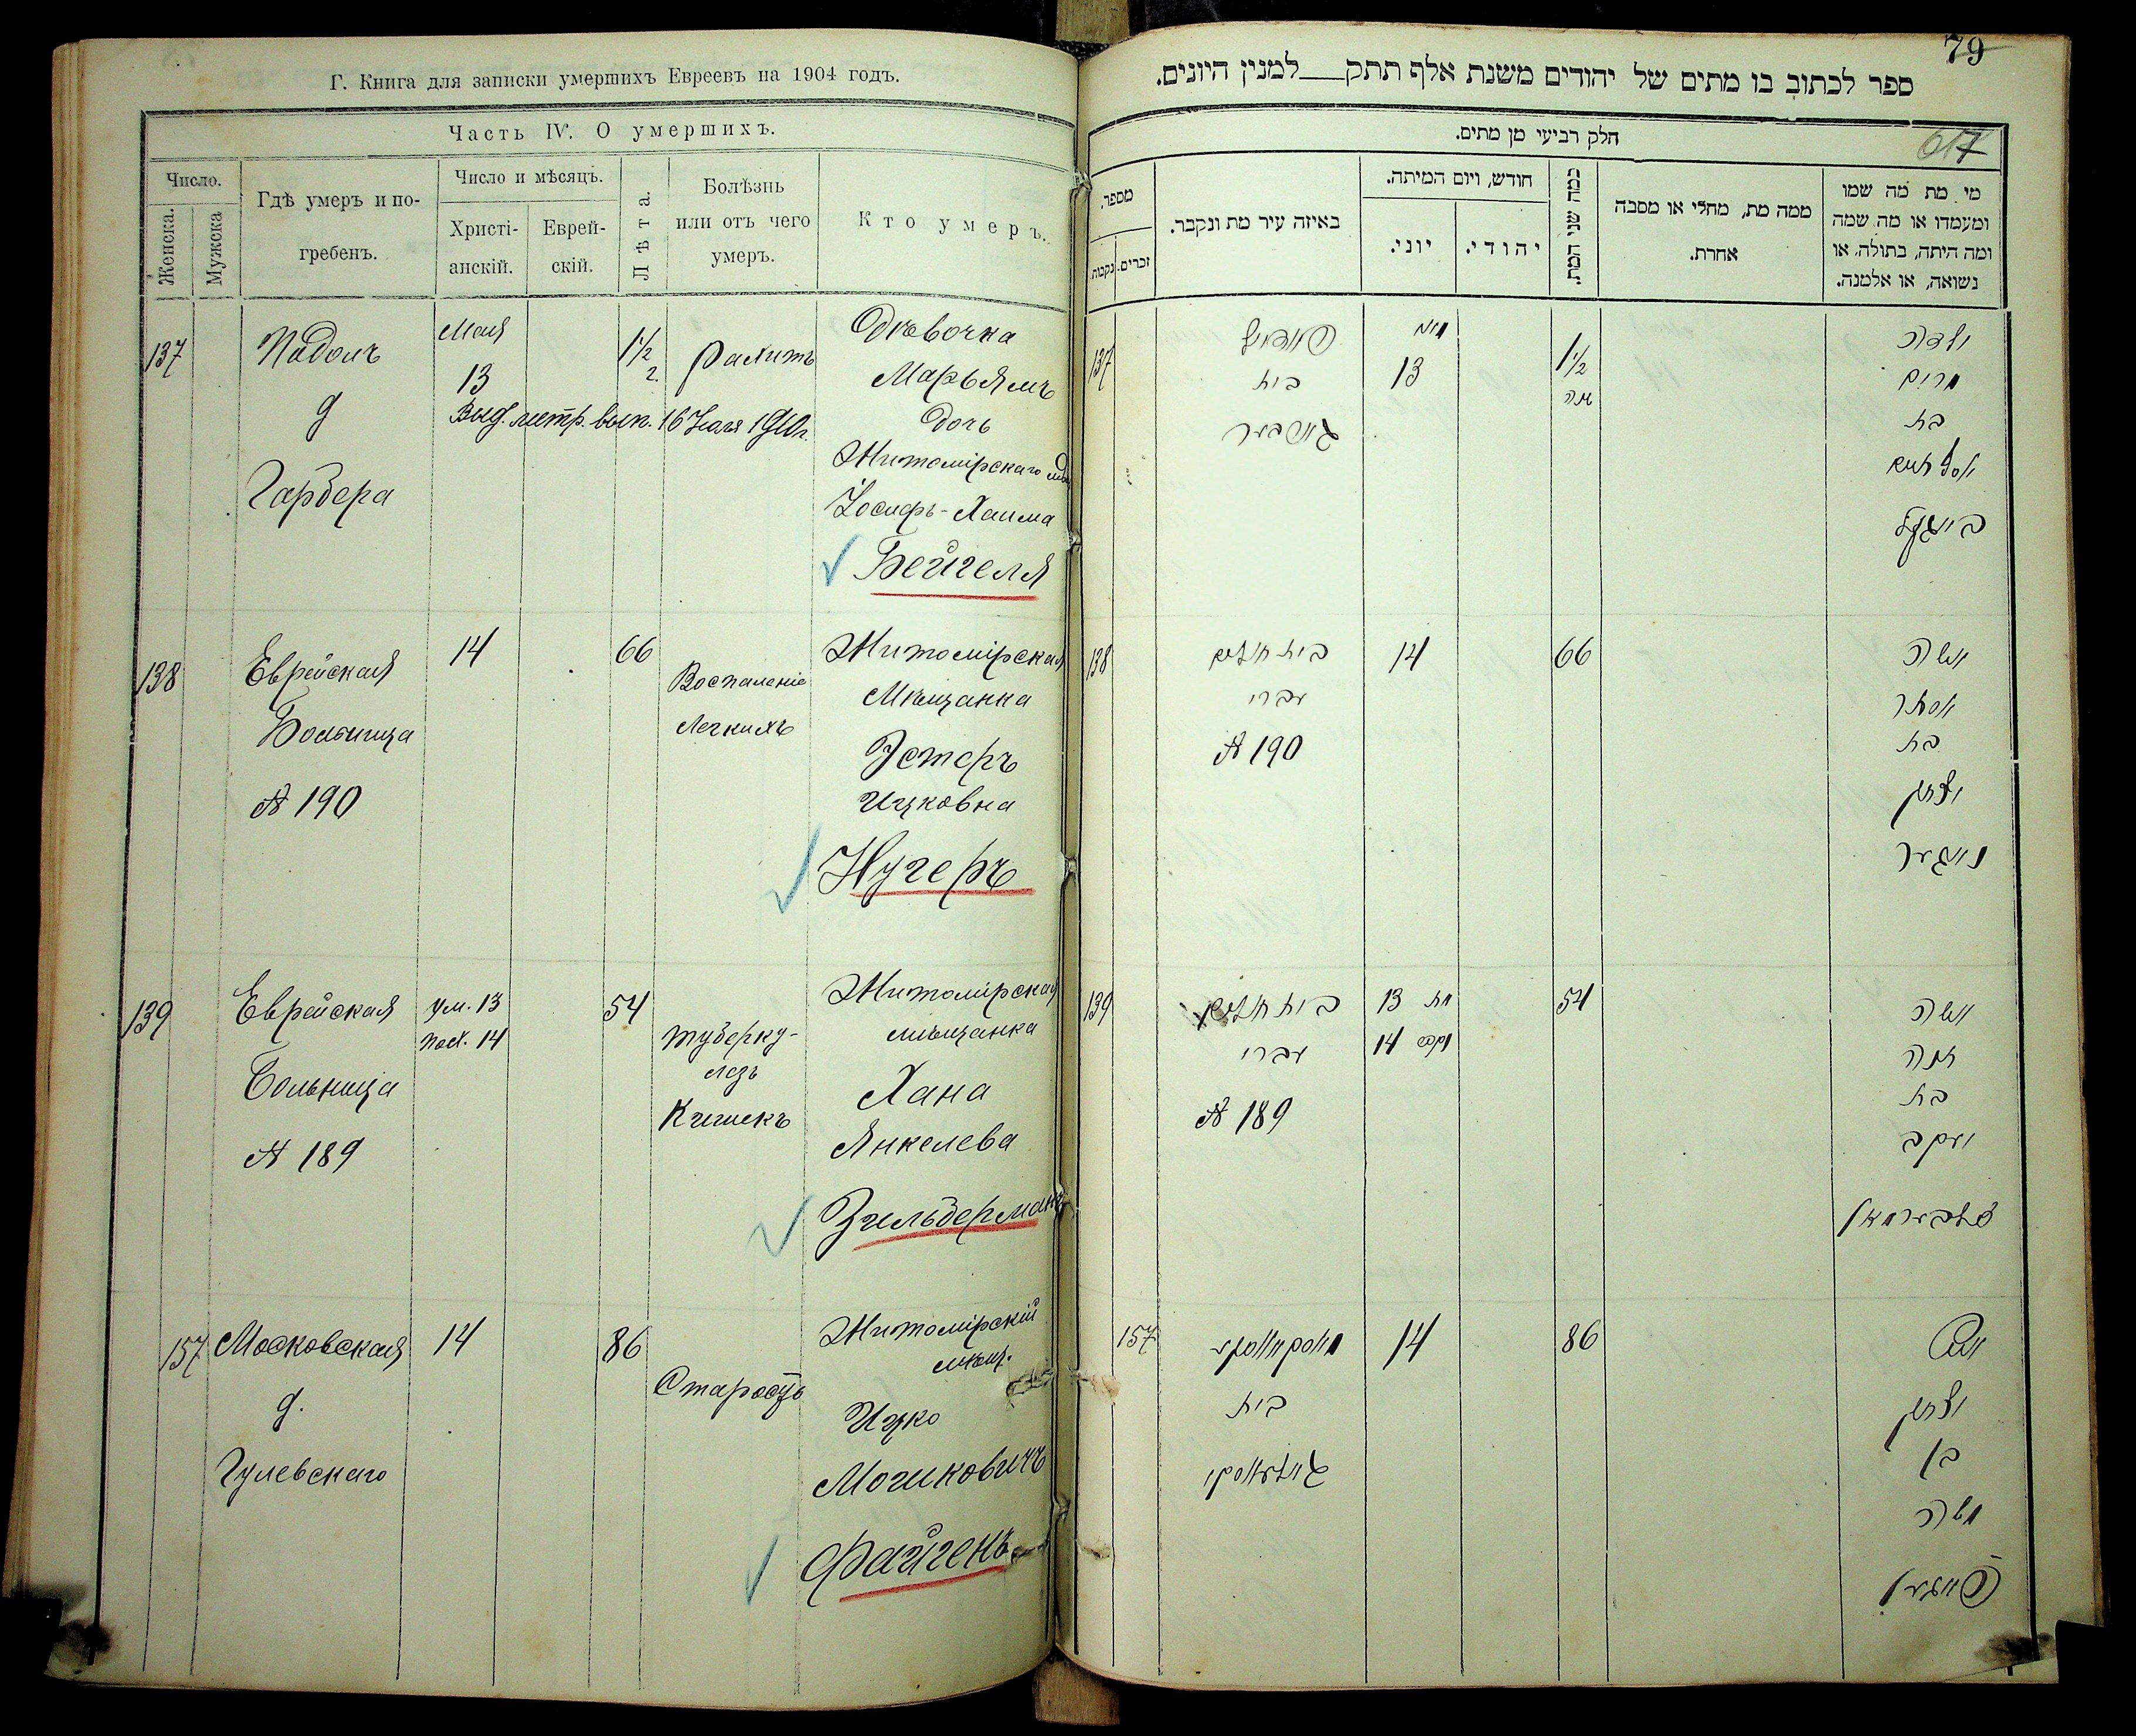 Г. Книга для записки умершихъ Евреевъ на 1904 годъ.
Часть IV. О умершихъ.
Число.
Женска.
Мужска
Гдѣ умеръ и по-
гребенъ.
Число и мѣсяцъ.
Христі-
анскій.
Еврей-
скій.
Лѣта.
Болѣзнь
или отъ чего
умеръ.
Кто умеръ.
137
Подолъ
д
Гарбера
Мая
13
1 1/2
2.
рахитъ
Выд. метр. вып. 16 Юля 1910г.
Дѣвочка
Марьямъ
дочь
Житомірскаго
Іосифъ-Хаима
Бейгеля
138
Еврейская
Больница
№ 190
14
66
Воспаленіе
Легкихъ
Житомірская
Мѣщанка
Эстеръ
Ицковна
Нугеръ
139
Еврейская
Больница
№ 189
ум. 13
пох. 14
54
туберку-
лезъ
Кишекъ
Житомірская
мѣщанка
Хана
Янкелева
Зильберманъ
157
Московская
д.
Гулевскаго
14
86
Старость
Житомірскій
мѣщ.
Ицко
Мошковичъ
Файгенъ
79
ספר לכתוב בו מתים של יהודים משנת אלף תתק למנין היונים.
617
חלק רביעי מן מתים.
מספר.
נקבות
זכרים.
באיזה עיר מת ונקבר.
חודש, ויום המיתה.
יוני.
יהודי.
כמה שני המת.
ממה מת, מחלי או מסבה
אחרת.
מי מת מה שמו
ומעמדו או מה שמה
ומה היתה, בתולה, או
נשואה, או אלמנה.
137
בית
מאי
13
1 1/2
ילדה
מרים
בת
יוסף חיים
בייגעל
138
בית חולים
עברי
№ 190
14
66
אשה
אסתר
בת
יצחק
נוגער
139
בית חולים
עברי
№ 189
מת 13
נקבר 14
54
אשה
חנה
בת
יעקב
זילבערמאן
157
בית
14
86
איש
יצחק
בן
משה
פייגען